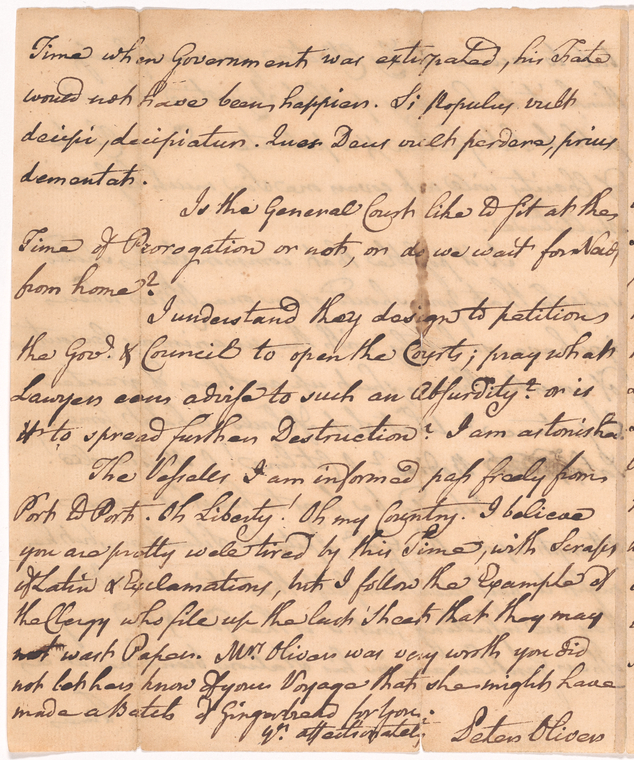 Time when Government was extirpated, his Fate
would not have been happier. Si Populus vult
decipi, decipiatur. Quos Deus vult perdere, prius
dementat.
Is the General Court like to sit at the
Time of Prorogation or not, or do we wait for News
from home?
I understand they design to petition
the Govr. & Council to open the Courts; pray what
Lawyers can advise to such an Absurdity? or is
it to spread further Destruction? I am astonished.
The Vessells I am informed pass freely from
Port to Port. Oh Liberty! Oh my Country. I believe
you are pretty well tired by this Time, with Scraps
of Latin & Exclamations, but I follow the Example of
the Clergy who file up the last Sheet that they may
not wast Paper. Mrs. Oliver was very wroth you did
not let her know of your Voyage that she might have
made a Batch of Gingerbread for you.
yr. affectionately
Peter Oliver